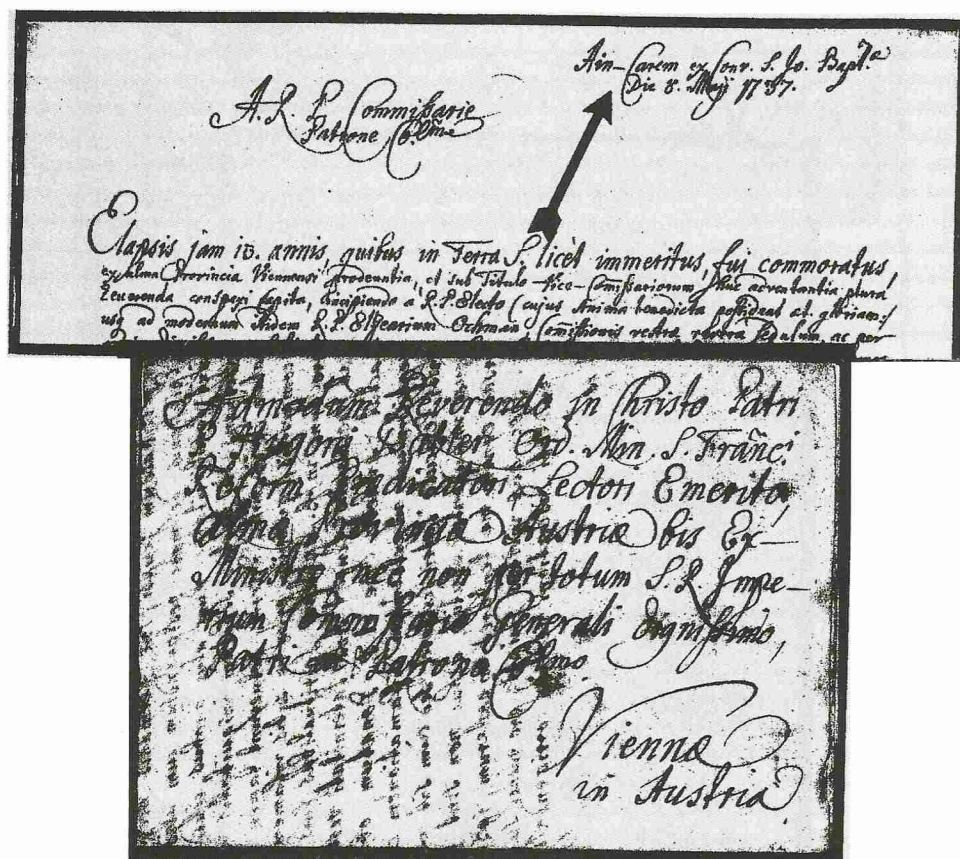 Ain-Carem ex Conv. S. Jo. Bapt.æ
Die 8. Maij 1737.
A. R. P. Commissarie
Patrone Col.mē
Elapsis jam 10. annis, quibus in Terra S. licèt immeritus, fui commoratus,
ex alma Provincia Viennensi prodeuntia, et sub Titulo Vice-Comissariorum huc adventantia plura
Reverenda conspexi capita, incipiendo a R. P. Electo (cujus Anima benedicta possideat æt. gloriam:/
usq ad modernum itidem R. P. Elzearium Ochman Comissionis vestræ
Admodum Reverendo in Christo Patri
Ord. Min. S. Franci.
Reform. Prædicatori, Lectori Emerito,
Almæ Provinciæ Austriæ bis Ex-
Ministro nec non per totum S. R. Impe-
rium Commissario Generali dignissimo,
Patri ac Patrono Col.mo
Viennæ
in Austria